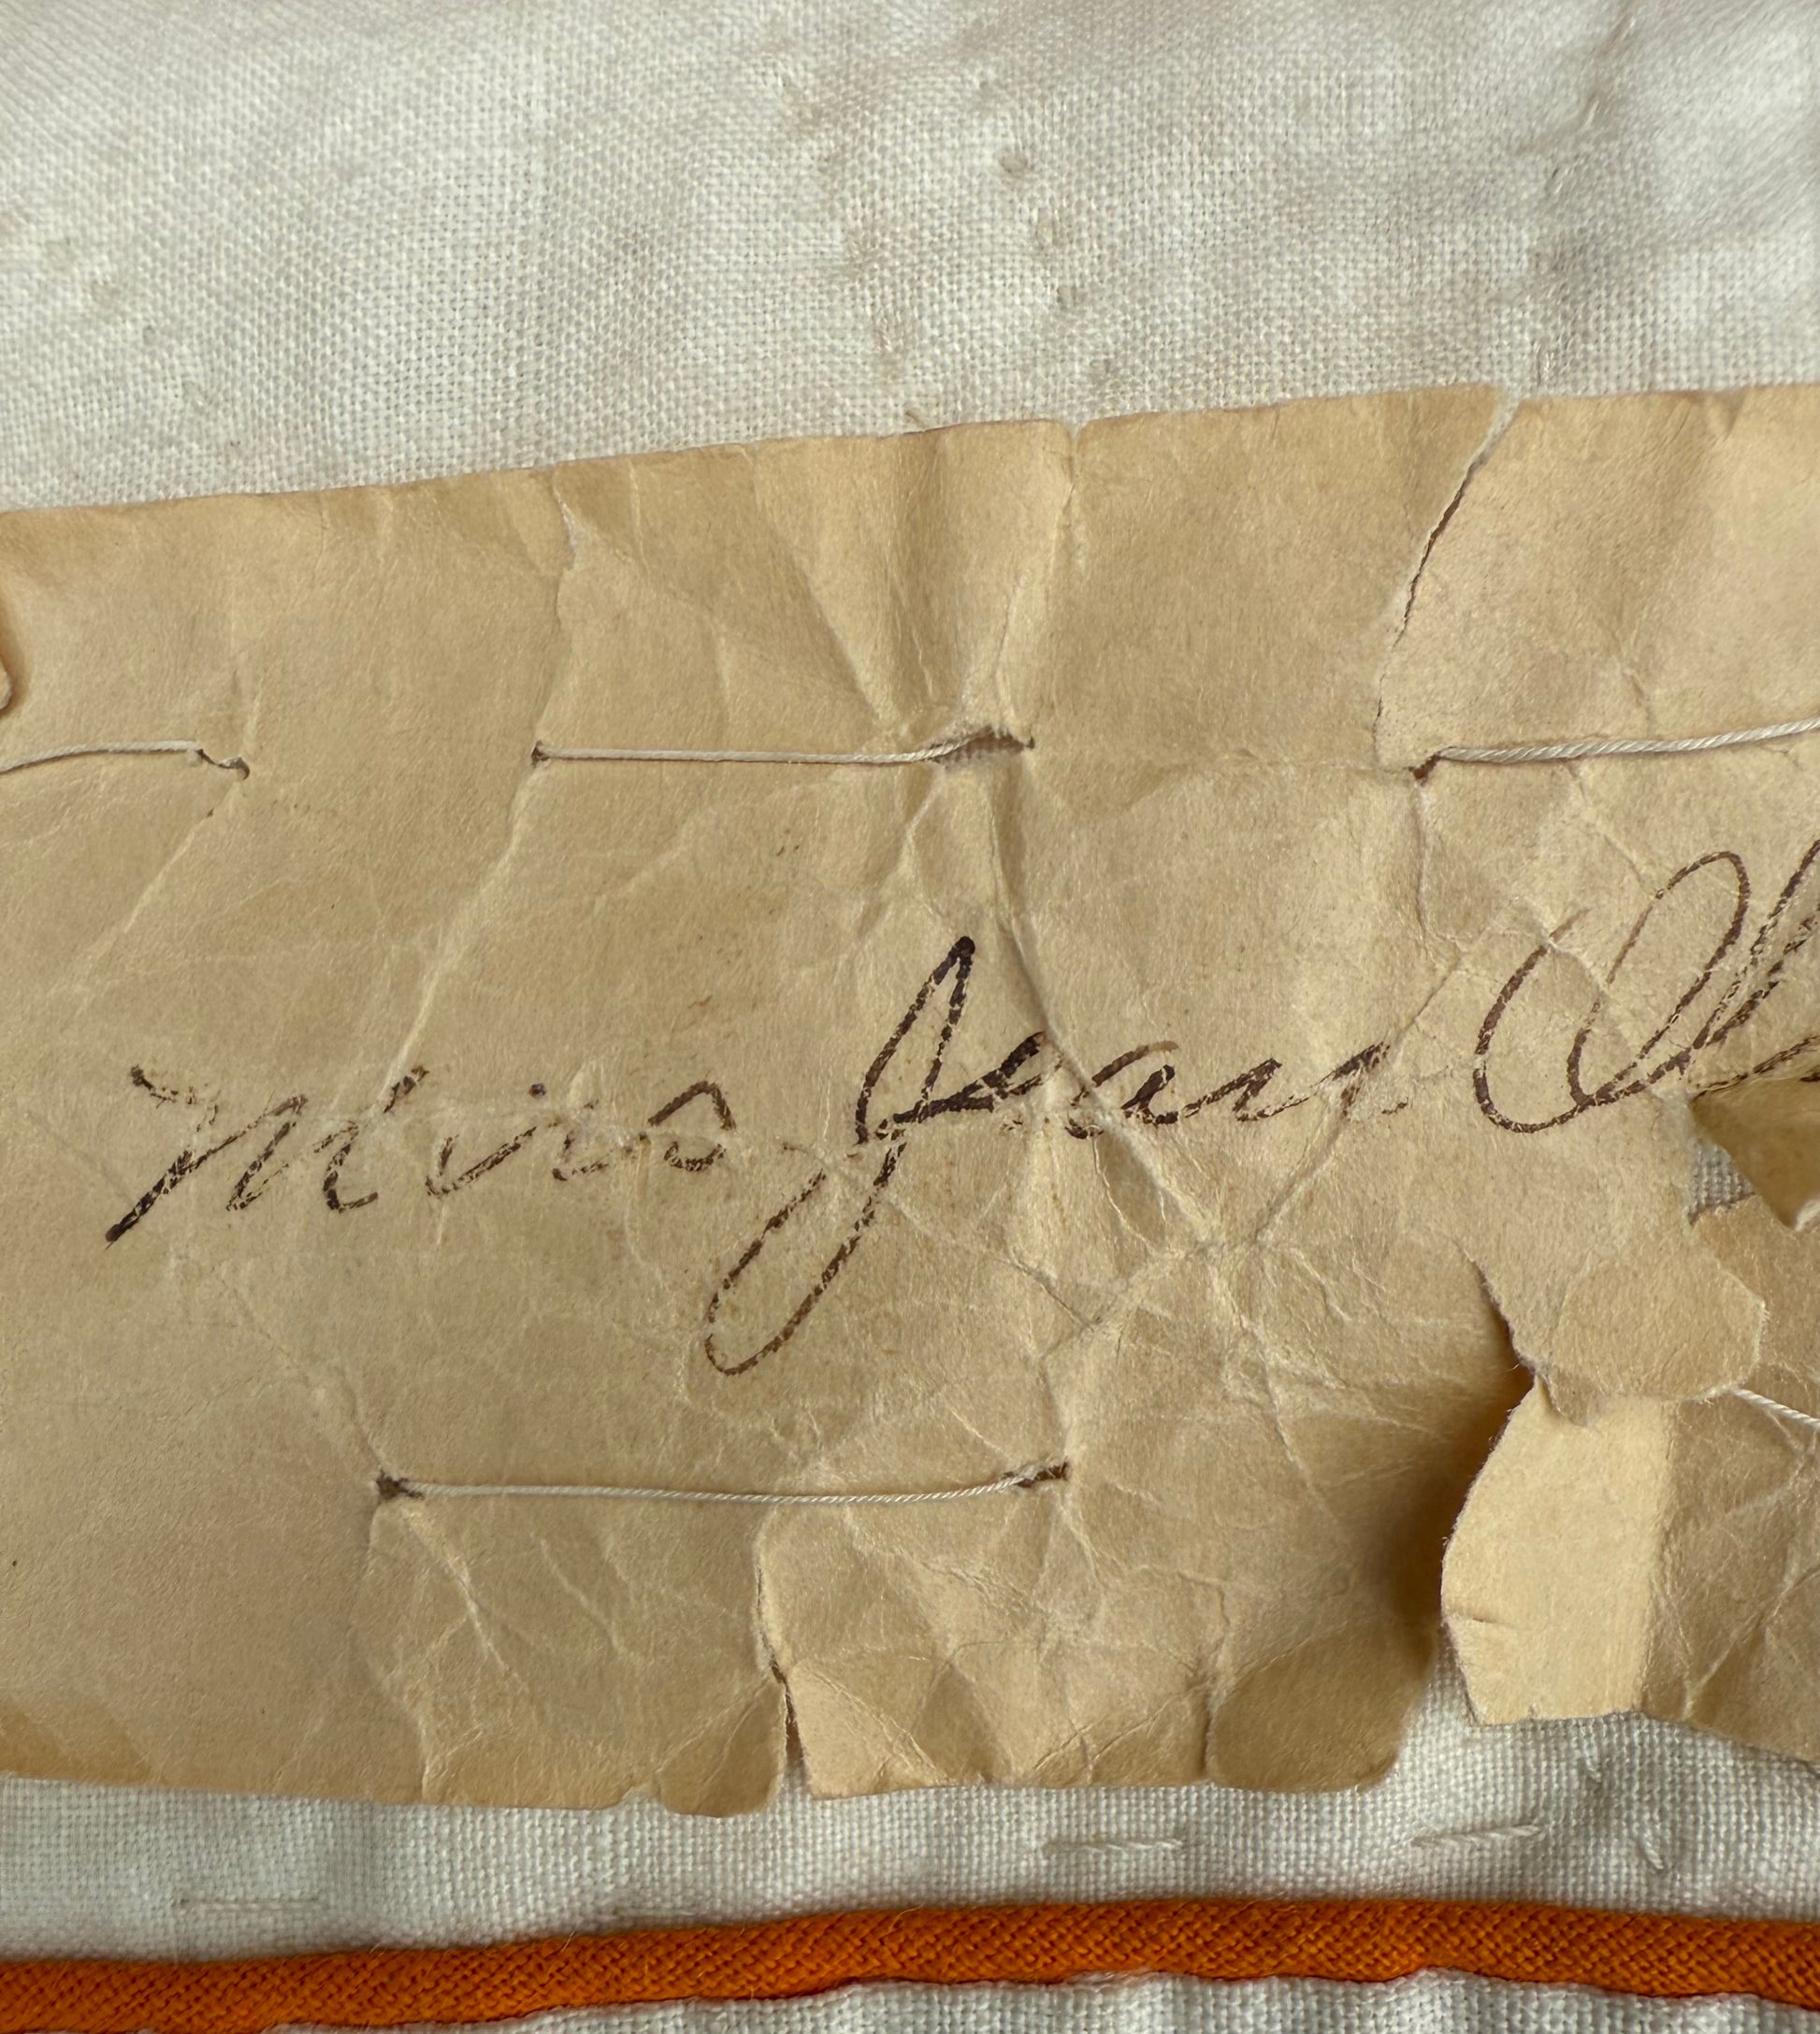 Miss Jean